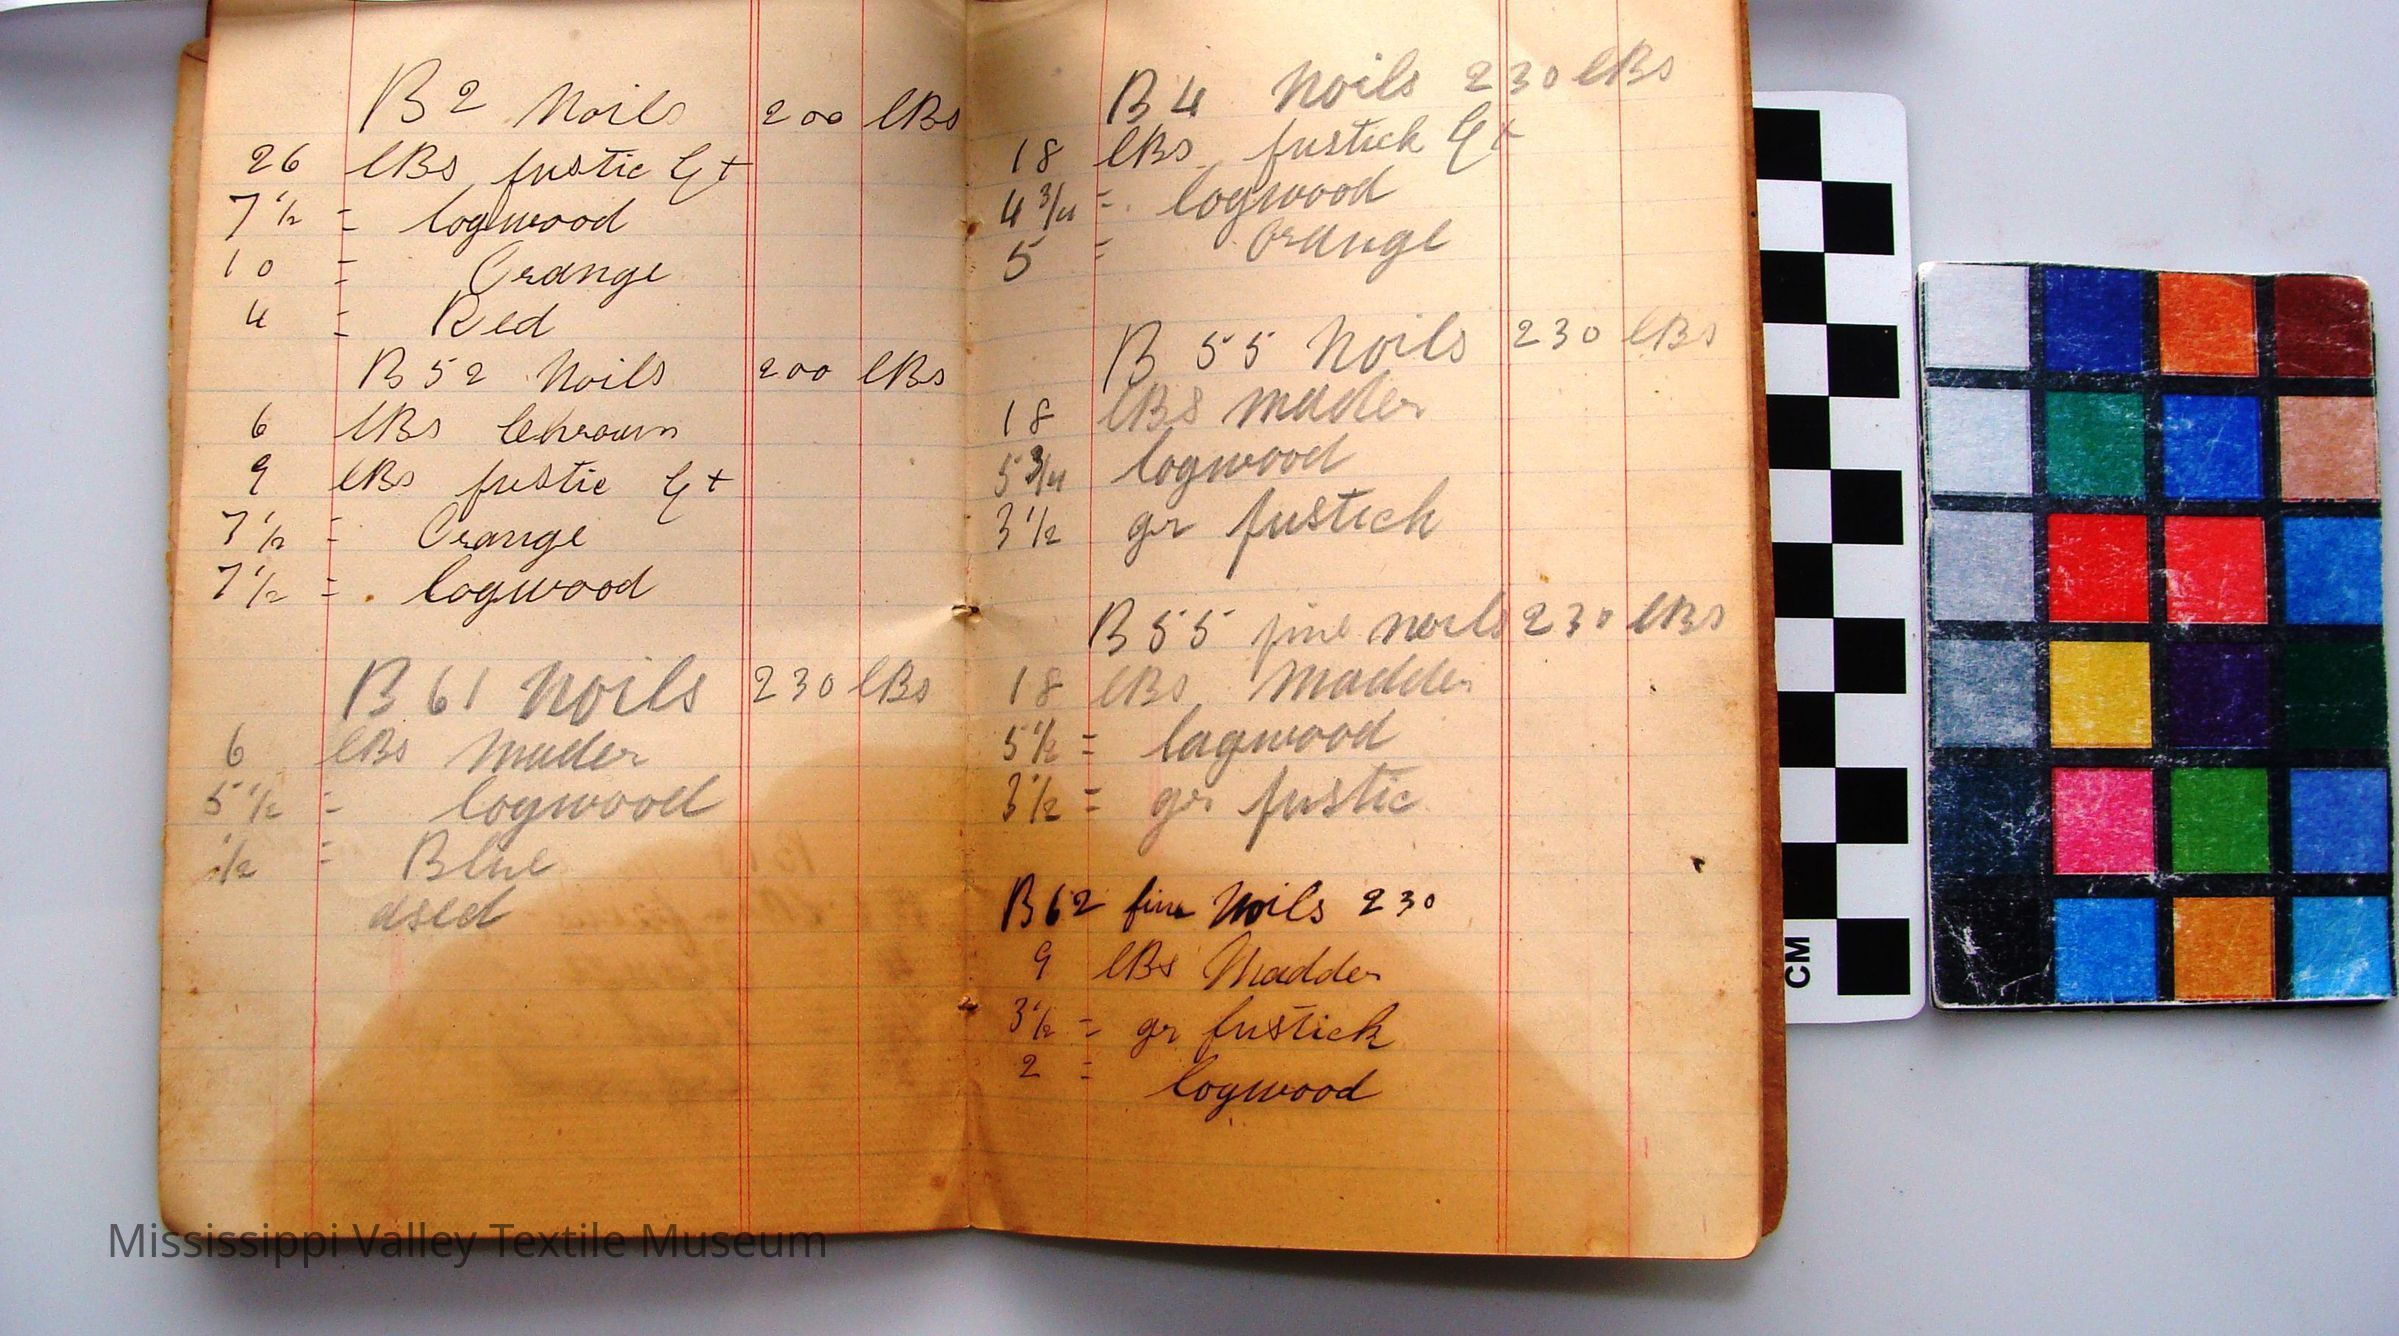 B2 Noils 200 lBs
26 lBs fustic Ext
7 1/2 = logwood
10 = Orange
4 = Red
B52 Noils 200 lBs
6 lBs
9 lBs fustic Ext
7 1/2 = Orange
7 1/2 = logwood
B61 Noils 230 lBs
6 lBs Mader
5 1/2 = logwood
1/2 = Blue
used
B4 Noils 230 lBs
18 lBs fustick Ext
4 3/4 = logwood
5 = Orange
B 55 Noils 230 lBs
18 lBs mader
5 3/4 logwood
3 1/2 gr fustick
B55 fine noils 230 lBs
18 lBs Madder
5 1/2 = lagwood
3 1/2 = gr fustic
B62 fine Noils 230
9 lBs Madder
3 1/2 = gr fustick
2 = logwood
CM
Mississippi Valley Textile Museum